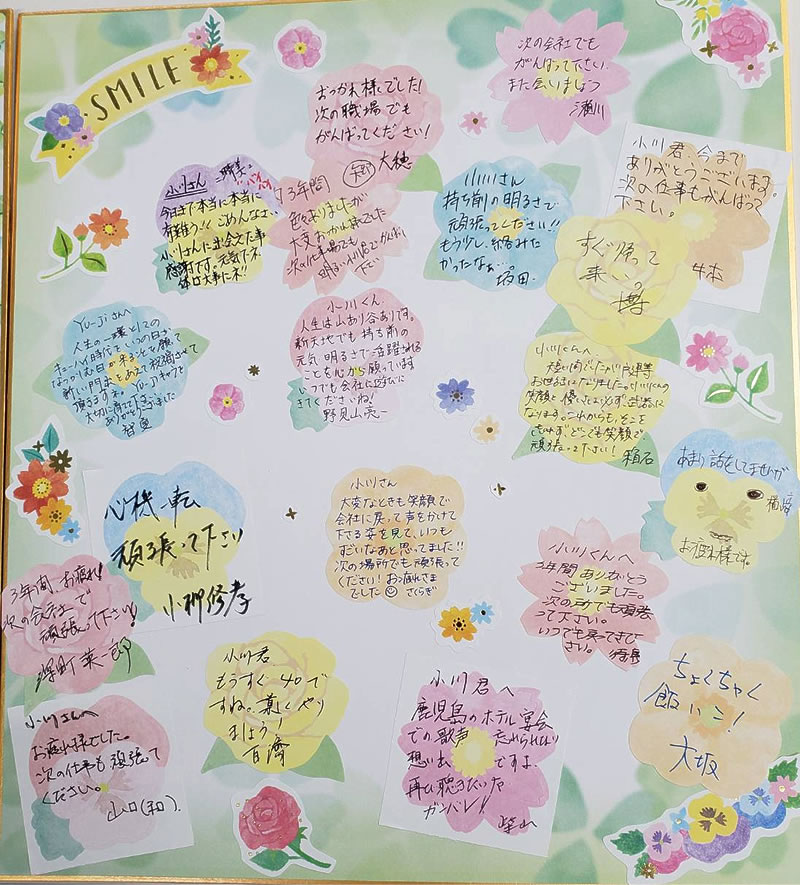 SMILE
おつかれ様でした！
次の職場でも
がんばってください！
大穂
次の会社でも
がんばって下さい。
また会いましょう
瀬川
小川君、今まで
ありがとうございます。
次の仕事もがんばって
下さい。
牛本
小川さん
今日まで本当に本当に
有難う!! ごめんなさい
小川さんに出会えた事
感謝です。元気でネ
体は大事にネ!!
3年間
色々ありましたが
大変おつかれ様でした
次の仕事場でも
明るい小川君でがんばって
下さい
小川さん
持ち前の明るさで
頑張ってください!!
もう少し、絡みた
かったなぁ…
すぐ帰って
来いっ
博
Yu-Jiさんへ
人生の一環としての
小川くん
人生は山あり谷ありです。
新天地でも持ち前の
元気、明るさで活躍される
ことを心から願っています
いつでも会社に遊びに
きてくださいね！
野見山亮一
小川さんへ
短い間でしたが
お世話になりました。小川くんの
笑顔と優しさは必ず武器に
なります。これからも、そこを
どこでも笑顔で
頑張って下さい！
箱石
あまり話をしてませんが
お疲れ様です。
心機一転
頑張って下さい
小柳修孝
小川さん
大変なときも笑顔で
会社に戻って声をかけて
下さる姿を見て、いつも
すごいなあと思ってました!!
次の場所でも頑張って
ください！お疲れさま
でした☺ さくらぎ
小川くんへ
3年間ありがとう
ございました。
次の所でも頑張
って下さい。
いつでも戻ってきて下
さい。
3年間、お疲れ！
次の会社で
頑張って下さい！
深町英一郎
小川君
もうすぐ40で
すね。楽しくやり
ましょう！
百濟
小川君へ
鹿児島のホテル宴会
での歌声 忘れられない
想い出ですよ、
再び聴きたいな
ガンバレ!!
柴山
ちょくちゃく
飯いこ！
大坂
小川さんへ
お疲れ様でした。
次の仕事も頑張って
ください。
山口(和).